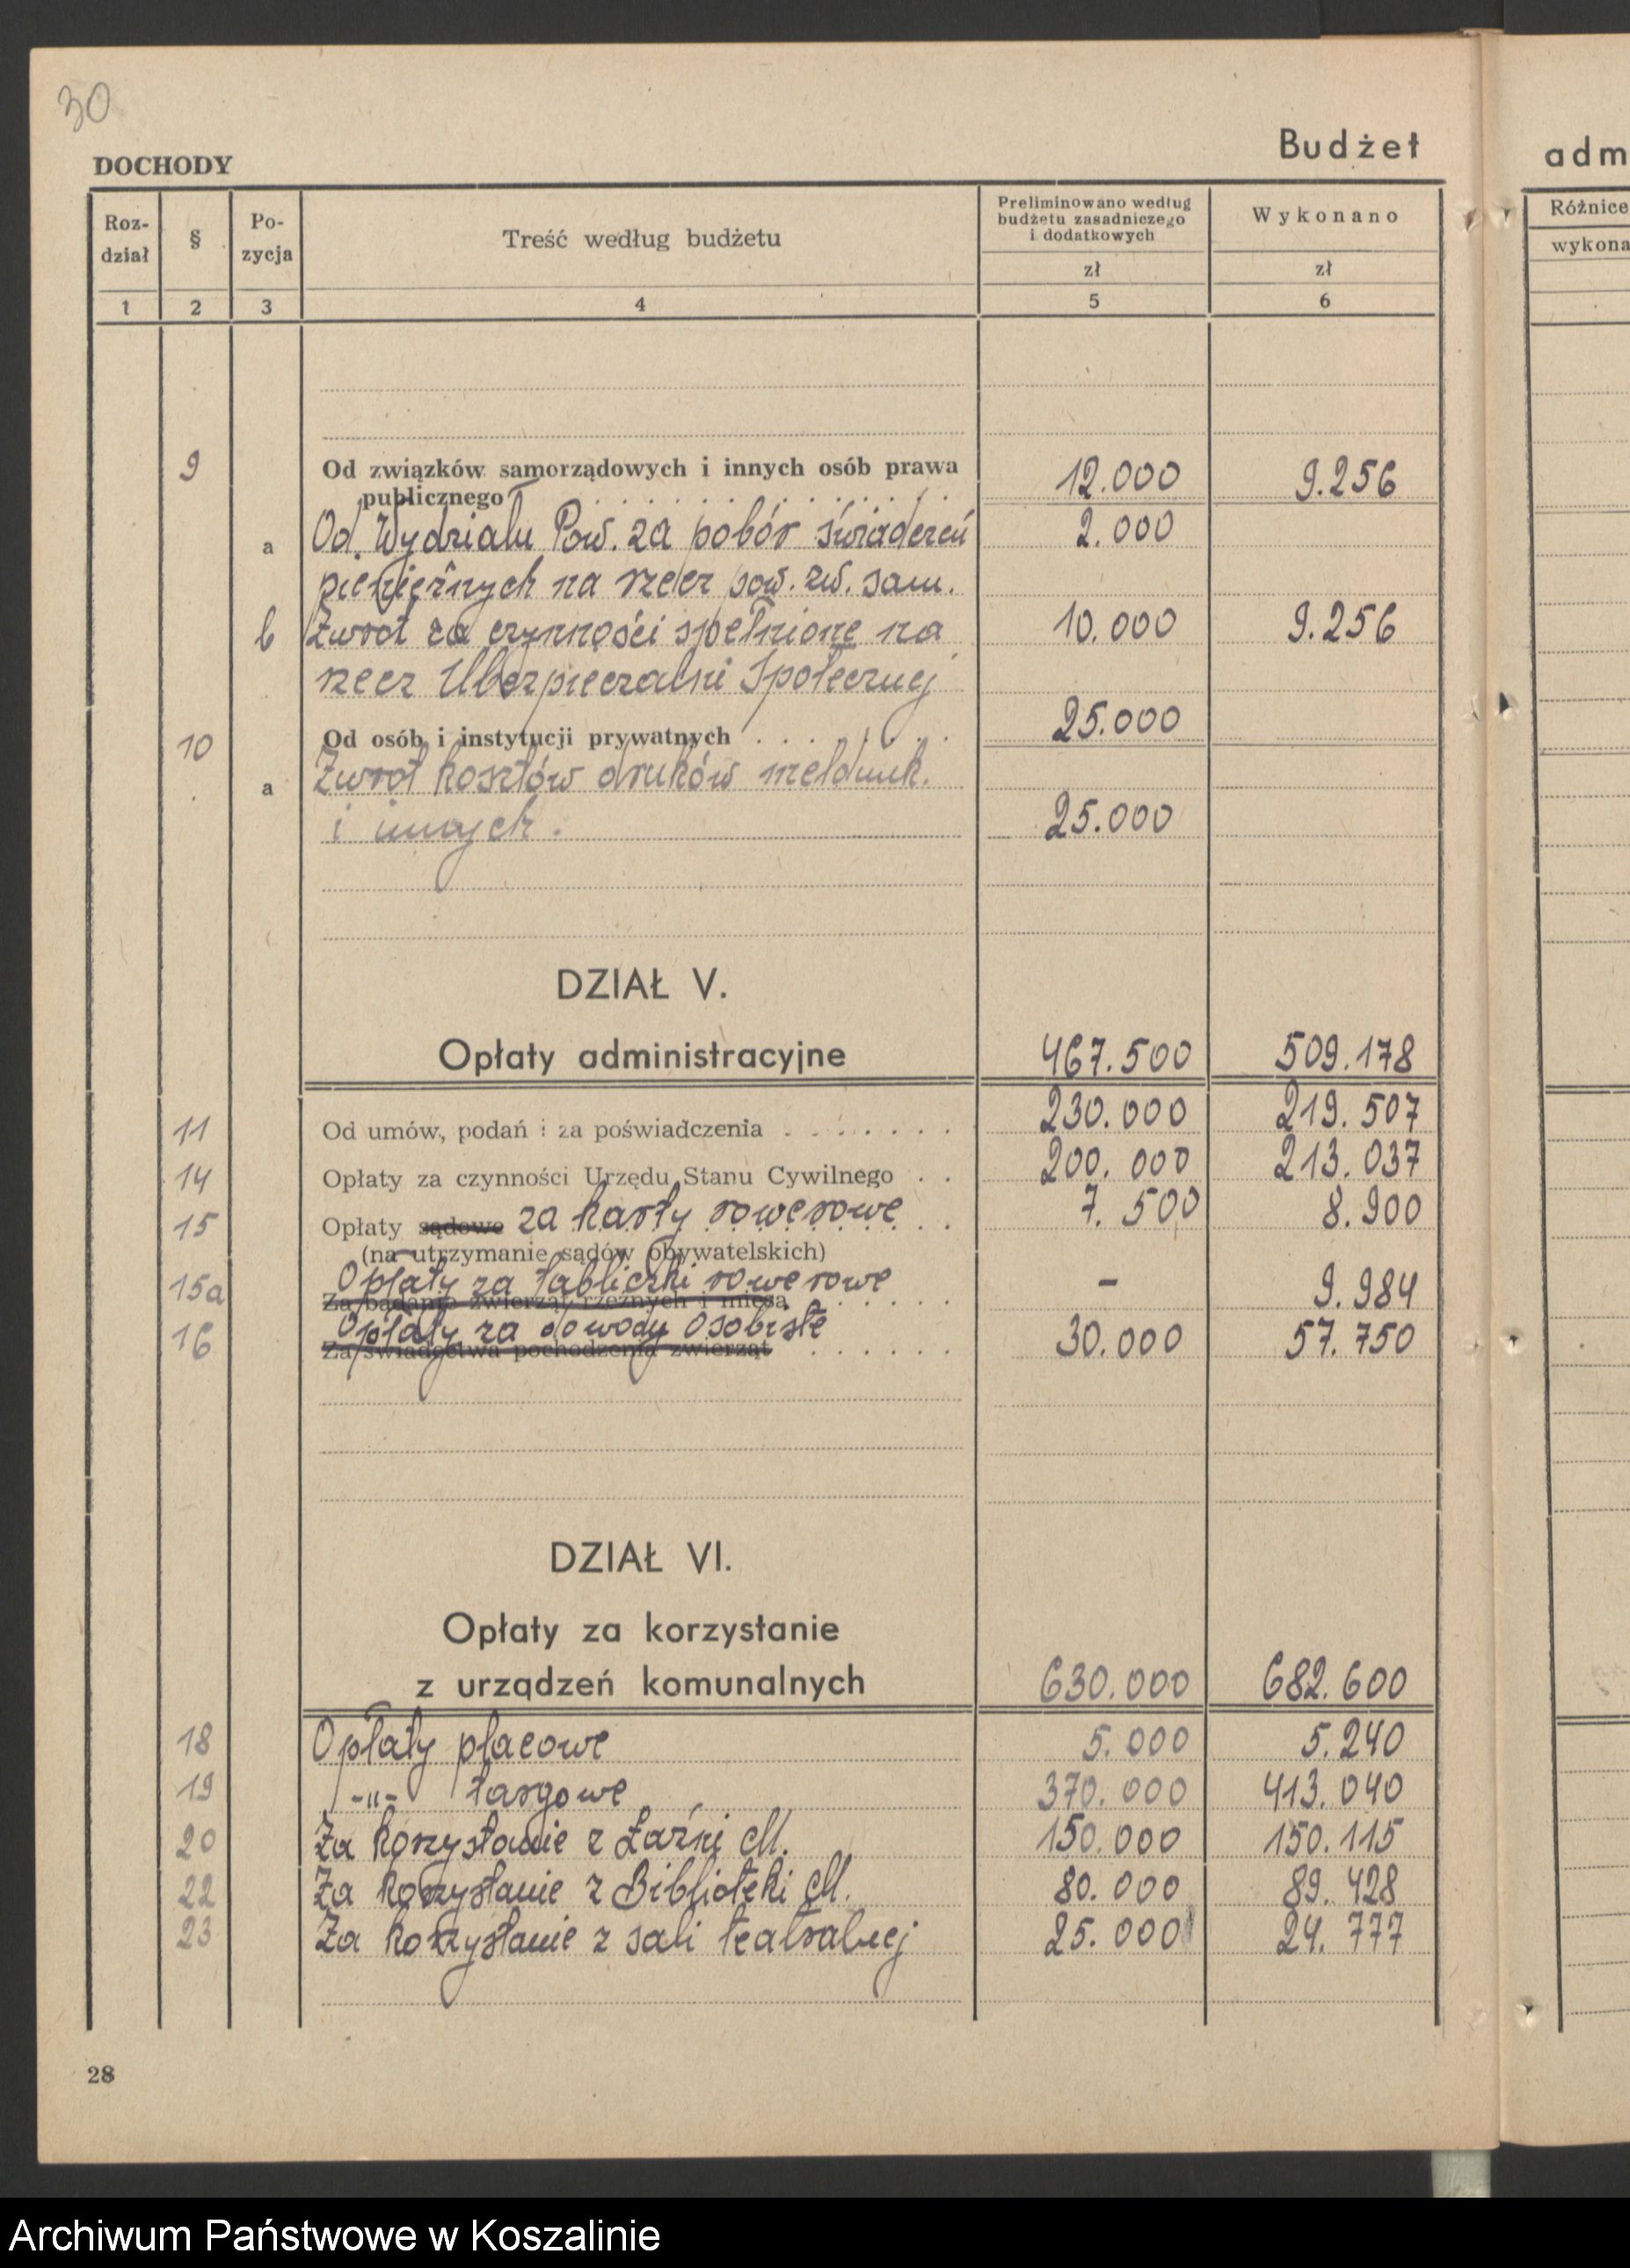 30
DOCHODY
Budżet
adm
Roz-
dział
§
Po-
zycja
Treść według budżetu
Preliminowano według
budżetu zasadniczego
i dodatkowych
Wykonano
Różnice
zł
zł
wykona
1 2 3 4 5 6
9 Od związków samorządowych i innych osób prawa
publicznego . . . . . . . . 12.000 9.256
a Od Wydziału Pow. za pobór świadczeń 2.000
pieniężnych na rzecz pow. zw. sam.
b Zwrot za czynności spełnione na 10.000 9.256
rzecz Ubezpieczalni Społecznej
10 Od osób i instytucji prywatnych . . . . . . 25.000
a Zwrot kosztów druków meldunk.
i innych. 25.000
DZIAŁ V.
Opłaty administracyjne 467.500 509.178
11 Od umów, podań i za poświadczenia . . . . . . . 230.000 219.507
14 Opłaty za czynności Urzędu Stanu Cywilnego . . 200.000 213.037
15 Opłaty sądowe za karty rowerowe . . 7.500 8.900
(na utrzymanie sądów obywatelskich)
15a Opłaty za tabliczki rowerowe – 9.984
Za badanie zwierząt rzeźnych i mięsa . . . . . .
16 Opłaty za dowody osobiste 30.000 57.750
Za świadectwa pochodzenia zwierząt . . . . . .
DZIAŁ VI.
Opłaty za korzystanie
z urządzeń komunalnych 630.000 682.600
18 Opłaty placowe 5.000 5.240
19 -"- targowe 370.000 413.040
20 Za korzystanie z Łaźni M. 150.000 150.115
22 Za korzystanie z Biblioteki M. 80.000 89.428
23 Za korzystanie z sali teatralnej 25.000 24.777
28
Archiwum Państwowe w Koszalinie